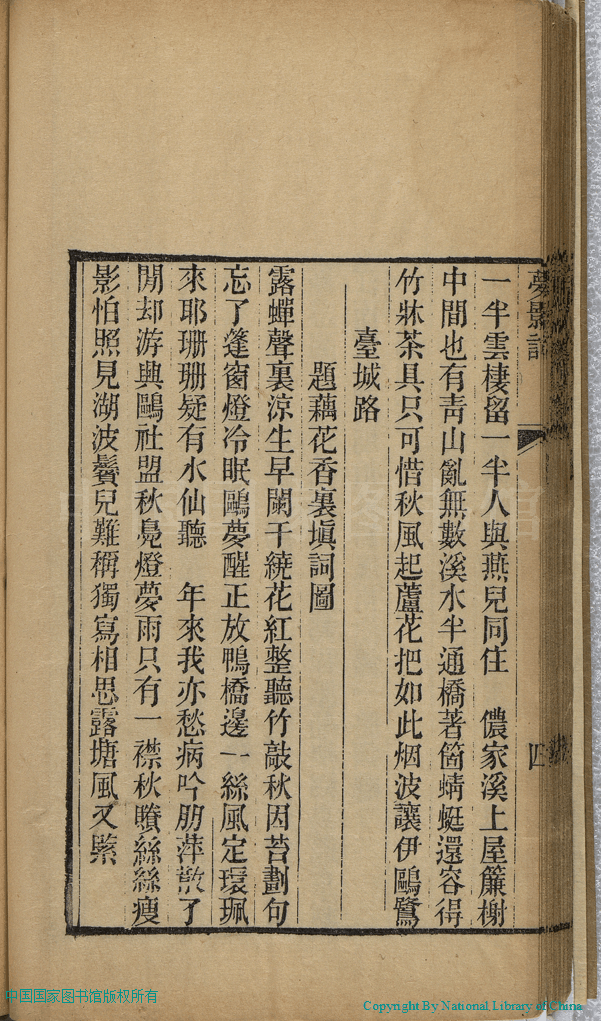 夢影詞
四
一半雲棲留一半人與燕兒同住　儂家溪上屋簾榭
中間也有青山亂無數溪水半通橋著箇蜻蜓還容得
竹牀茶具只可惜秋風起蘆花把如此烟波讓伊鷗鷺
臺城路
題藕花香裏塡詞圖
露蟬聲裏涼生早闌干繞花紅整聽竹敲秋因苔劃句
忘了篷窗燈冷眠鷗夢醒正放鴨橋邊一絲風定環珮
來耶珊珊疑有水仙聽　年來我亦愁病吟朋萍散了
閒却游興鷗社盟秋鳧燈夢雨只有一襟秋賸絲絲瘦
影怕照見湖波鬢兒難稱獨寫相思露塘風又緊
中国国家图书馆版权所有
Copyright By National Library of China